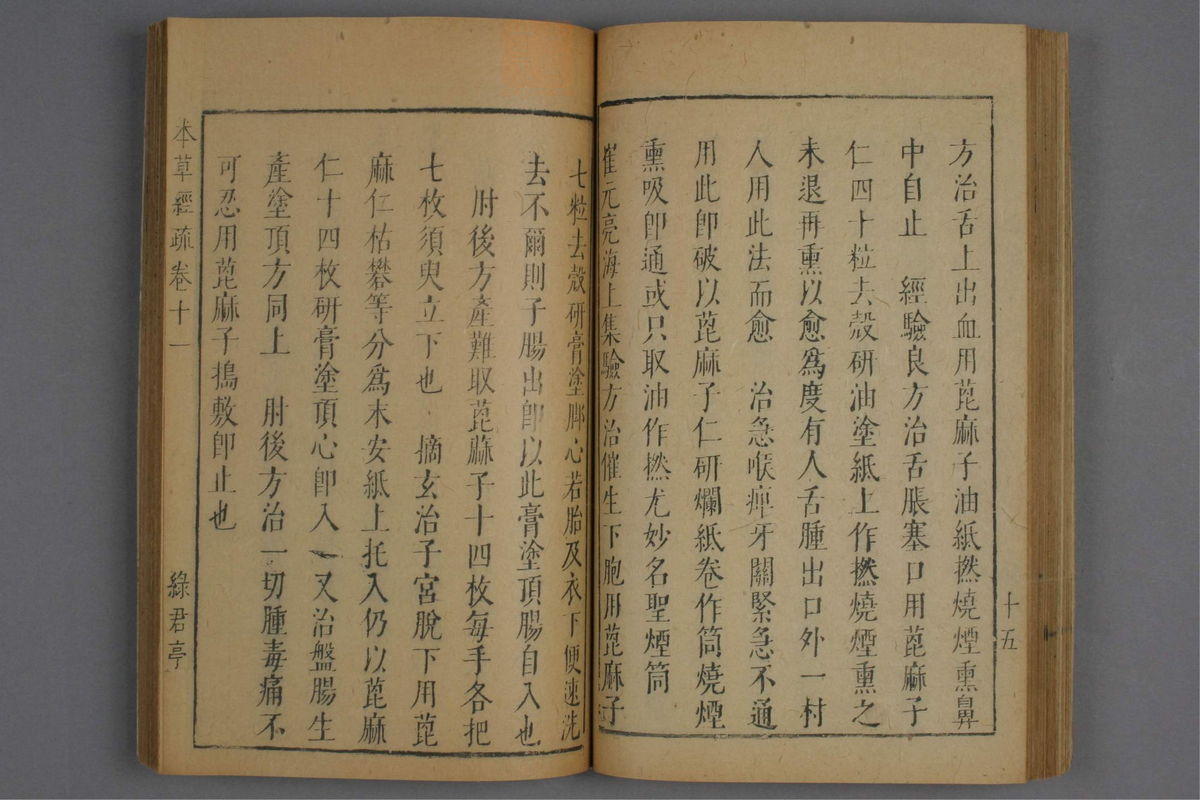 十五
方治舌上出血用蓖麻子油紙撚燒煙熏鼻
中自止　經驗良方治舌脹塞口用蓖麻子
仁四十粒去殼研油塗紙上作撚燒煙熏之
未退再熏以愈爲度有人舌腫出口外一村
人用此法而愈　治急喉痺牙關緊急不通
用此卽破以蓖麻子仁研爛紙卷作筒燒煙
熏吸卽通或只取油作撚尤妙名聖煙筒
崔元亮海上集驗方治催生下胞用蓖麻子
七粒去殼研膏塗腳心若胎及衣下便速洗
去不爾則子腸出卽以此膏塗頂腸自入也
肘後方產難取蓖蔴子十四枚每手各把
七枚須臾立下也　摘玄治子宮脫下用蓖
麻仁枯礬等分爲末安紙上托入仍以蓖麻
仁十四枚研膏塗頂心卽入　又治盤腸生
產塗頂方同上　肘後方治一切腫毒痛不
可忍用蓖麻子搗敷卽止也
本草經疏卷十一
綠君亭